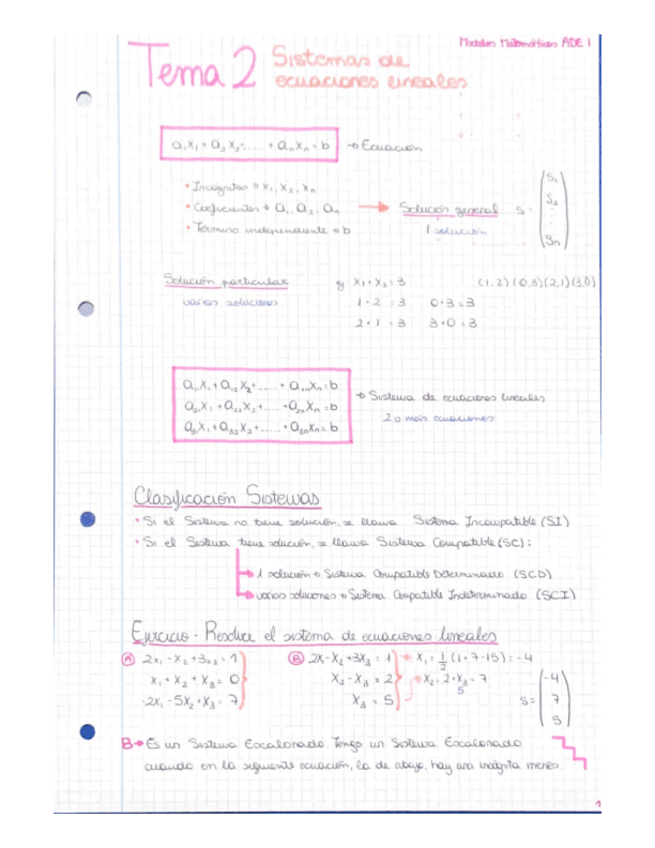 Modelos Matemáticos ADE 1
Tema 2 Sistemas de
ecuaciones lineales
a₁x₁ + a₂x₂ + ..... + aₙxₙ = b → Ecuación
• Incógnitas → x₁, x₂, xₙ
• Coeficientes → a₁, a₂, aₙ → Solución general s = (s₁ s₂ ⋮ sₙ)
• Término independiente → b 1 solución
Solución particular ej x₁ + x₂ = 3 (1,2) (0,3) (2,1) (3,0)
varias soluciones 1 + 2 = 3 0 + 3 = 3
2 + 1 = 3 3 + 0 = 3
a₁₁x₁ + a₁₂x₂ + ..... + a₁ₙxₙ = b
a₂₁x₁ + a₂₂x₂ + ..... + a₂ₙxₙ = b → Sistema de ecuaciones lineales
a₃₁x₁ + a₃₂x₂ + ..... + a₃ₙxₙ = b 2 o más ecuaciones
Clasificación Sistemas
• Si el Sistema no tiene solución, se llama Sistema Incompatible (SI)
• Si el Sistema tiene solución, se llama Sistema Compatible (SC):
1 solución → Sistema Compatible Determinado (SCD)
varias soluciones → Sistema Compatible Indeterminado (SCI)
Ejercicio - Resolver el sistema de ecuaciones lineales
A 2x₁ - x₂ + 3x₃ = 1 B 2x - x₂ + 3x₃ = 1 → x₁ = 1/2 (1 + 7 - 15) = -4
x₁ + x₂ + x₃ = 0 x₂ - x₃ = 2 → x₂ = 2 + x₃ = 7
5
-2x₁ - 5x₂ + x₃ = 7 x₃ = 5 s = (-4 7 5)
B → Es un Sistema Escalonado. Tengo un Sistema Escalonado
cuando en la siguiente ecuación, la de abajo, hay una incógnita menos.
1